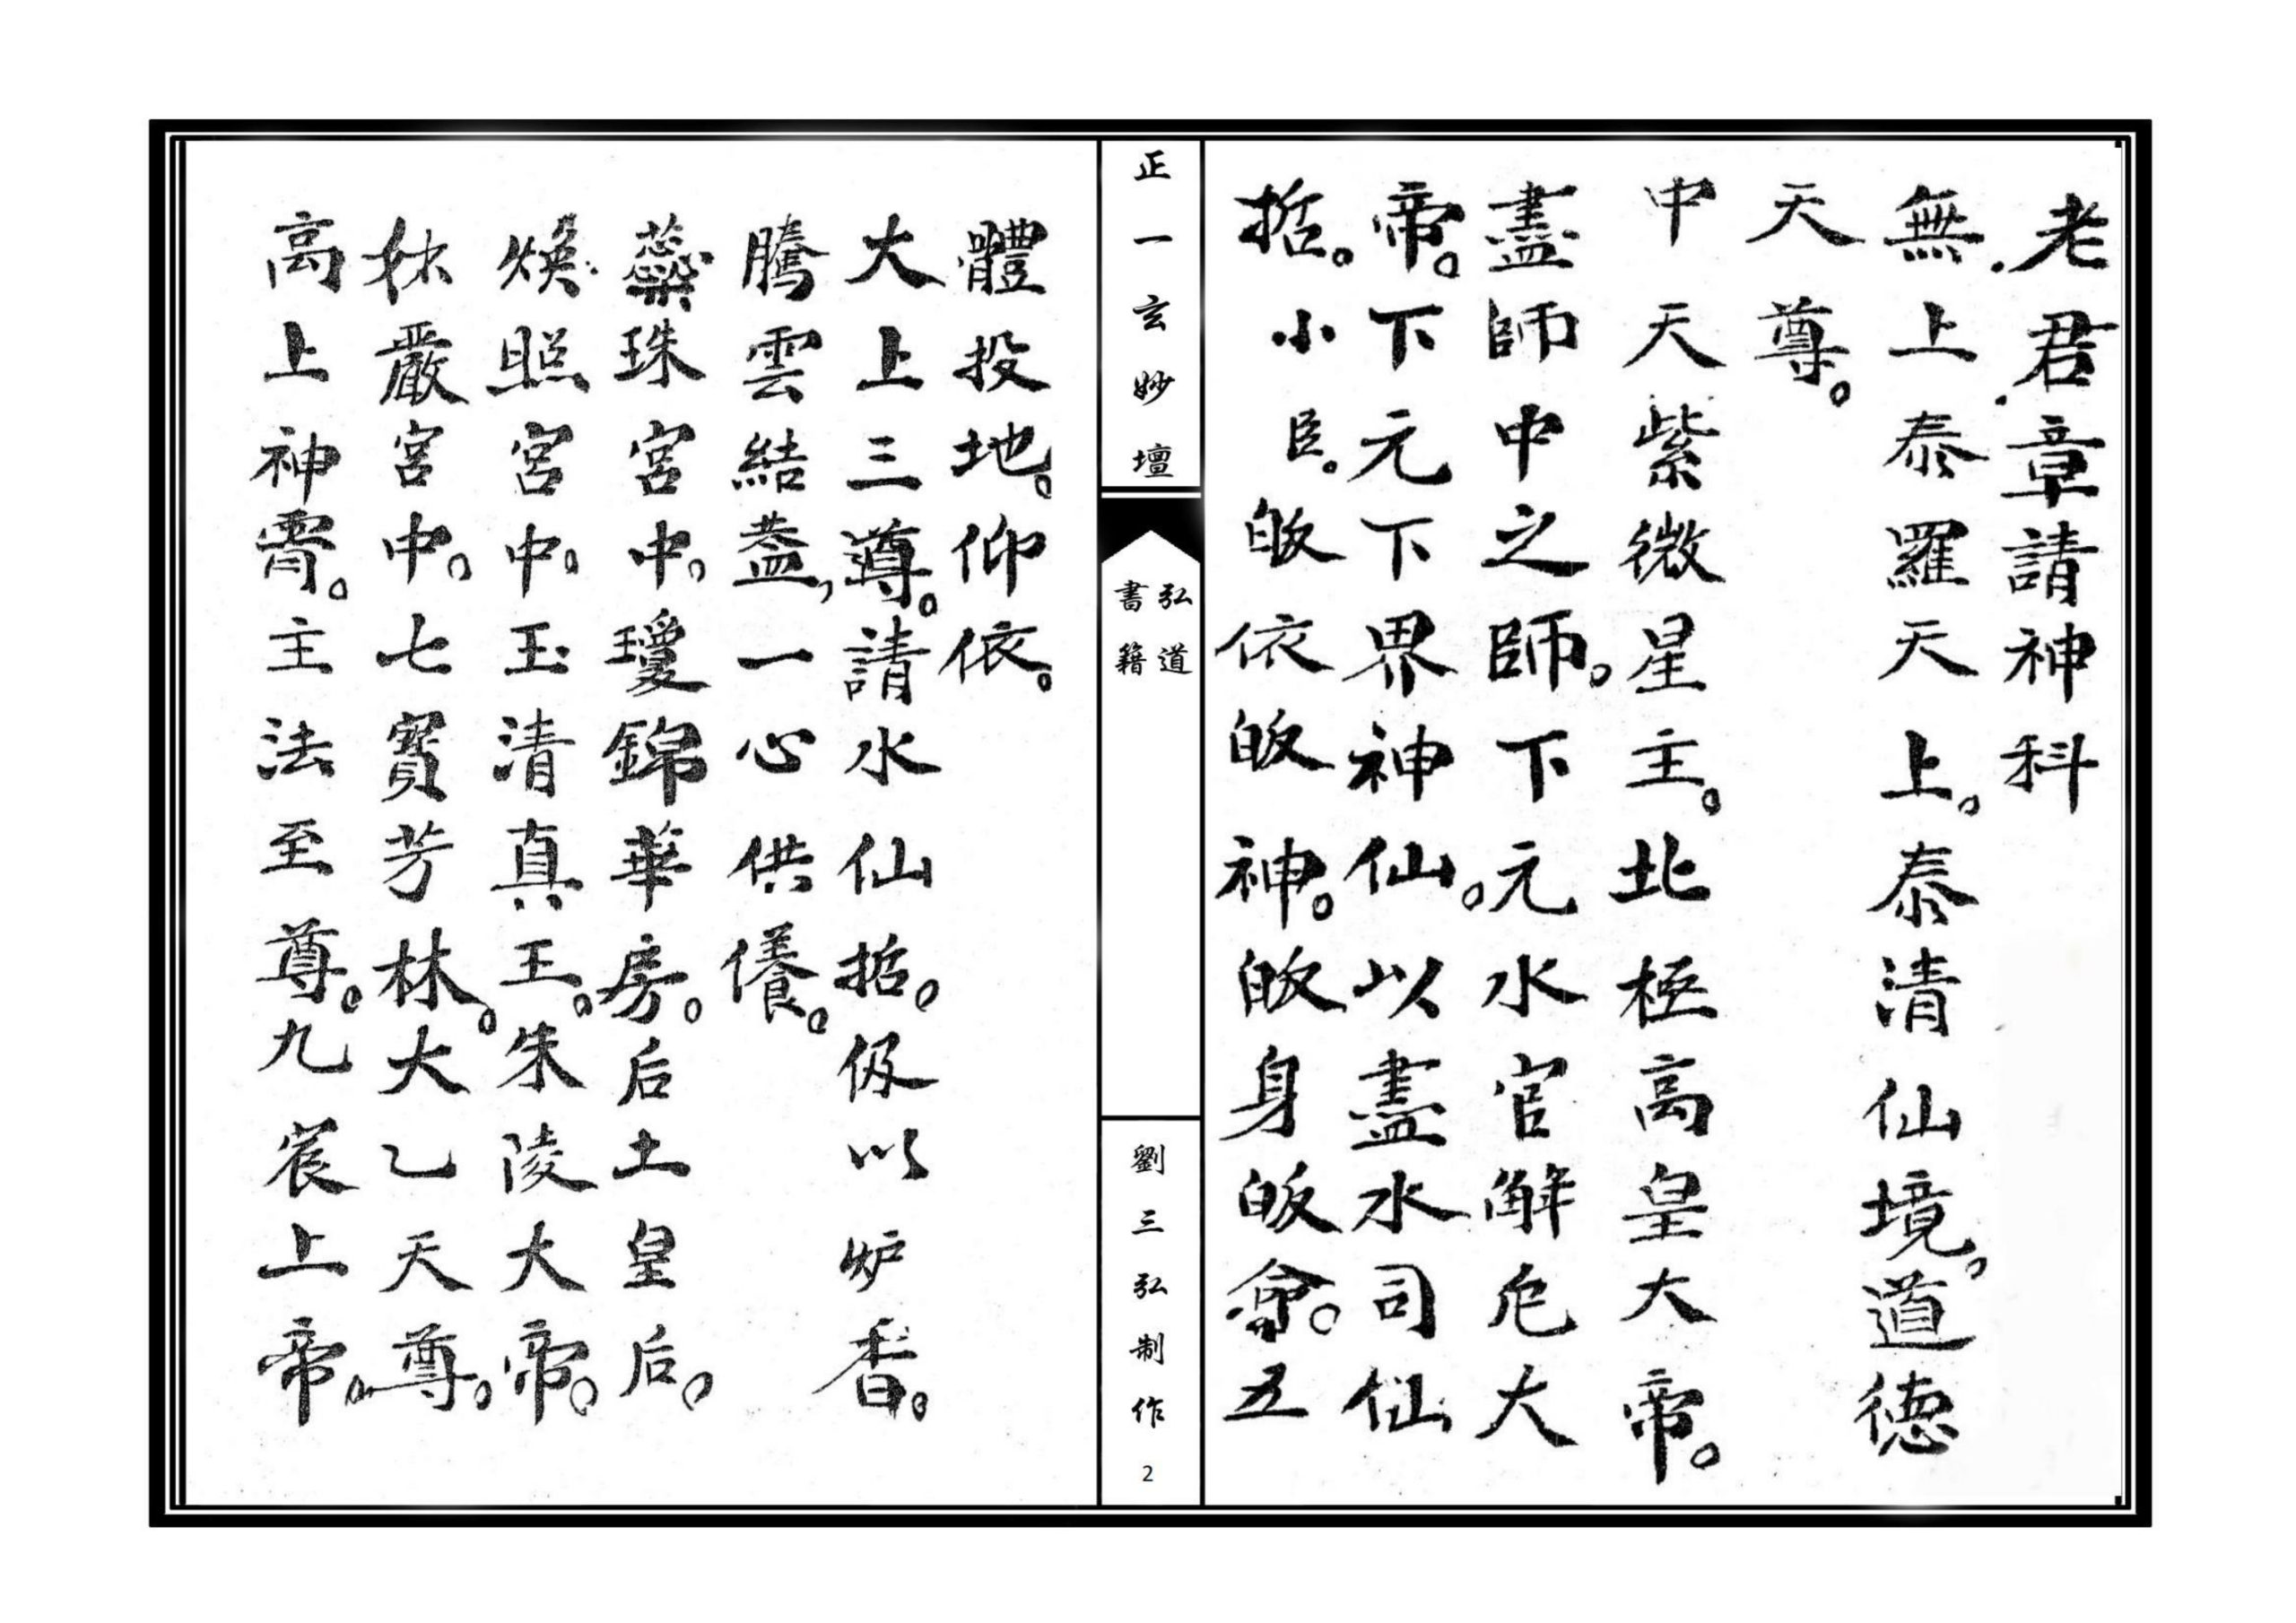 老君章請神科
無上泰羅天上。泰清仙境。道德
天尊。
中天紫微星主。北極高皇大帝。
盡師中之師。下元水官解厄大
帝。下元下界神仙。以盡水司仙
哲。小臣。皈依皈神。皈身皈命。五
正一玄妙壇
弘道
書籍
劉三弘制作
2
體投地。仰依。
大上三尊。請水仙哲。伋以炉香。
騰雲結蓋，一心供養。
蕊珠宮中。瓊錦華房。后土皇后。
煥照宮中。玉清真王。朱陵大帝。
嚴宮中。七寶芳林。大乙天尊。
高上神霄。主法至尊。九宸上帝。